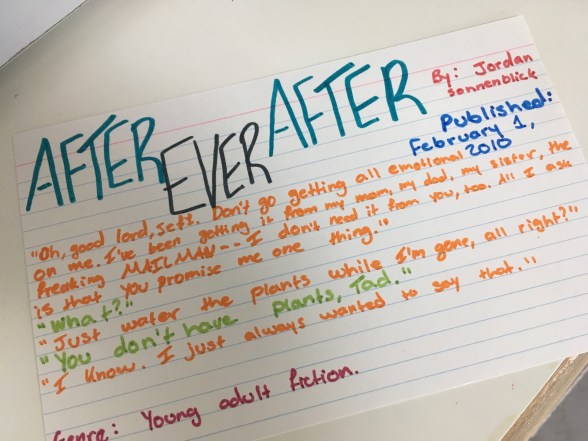 AFTER EVER AFTER
By: Jordan
sonnenblick
Published:
February 1,
2010
"Oh, good lord, Jeff. Don't go getting all emotional
on me. I've been getting it from my mom, my dad, my sister, the
freaking MAILMAN -- I don't need it from you, too. All I ask
is that you promise me one thing."
"What?"
"Just water the plants while I'm gone, all right?"
"You don't have plants, Tad."
"I know. I just always wanted to say that."
Genre: Young adult fiction.